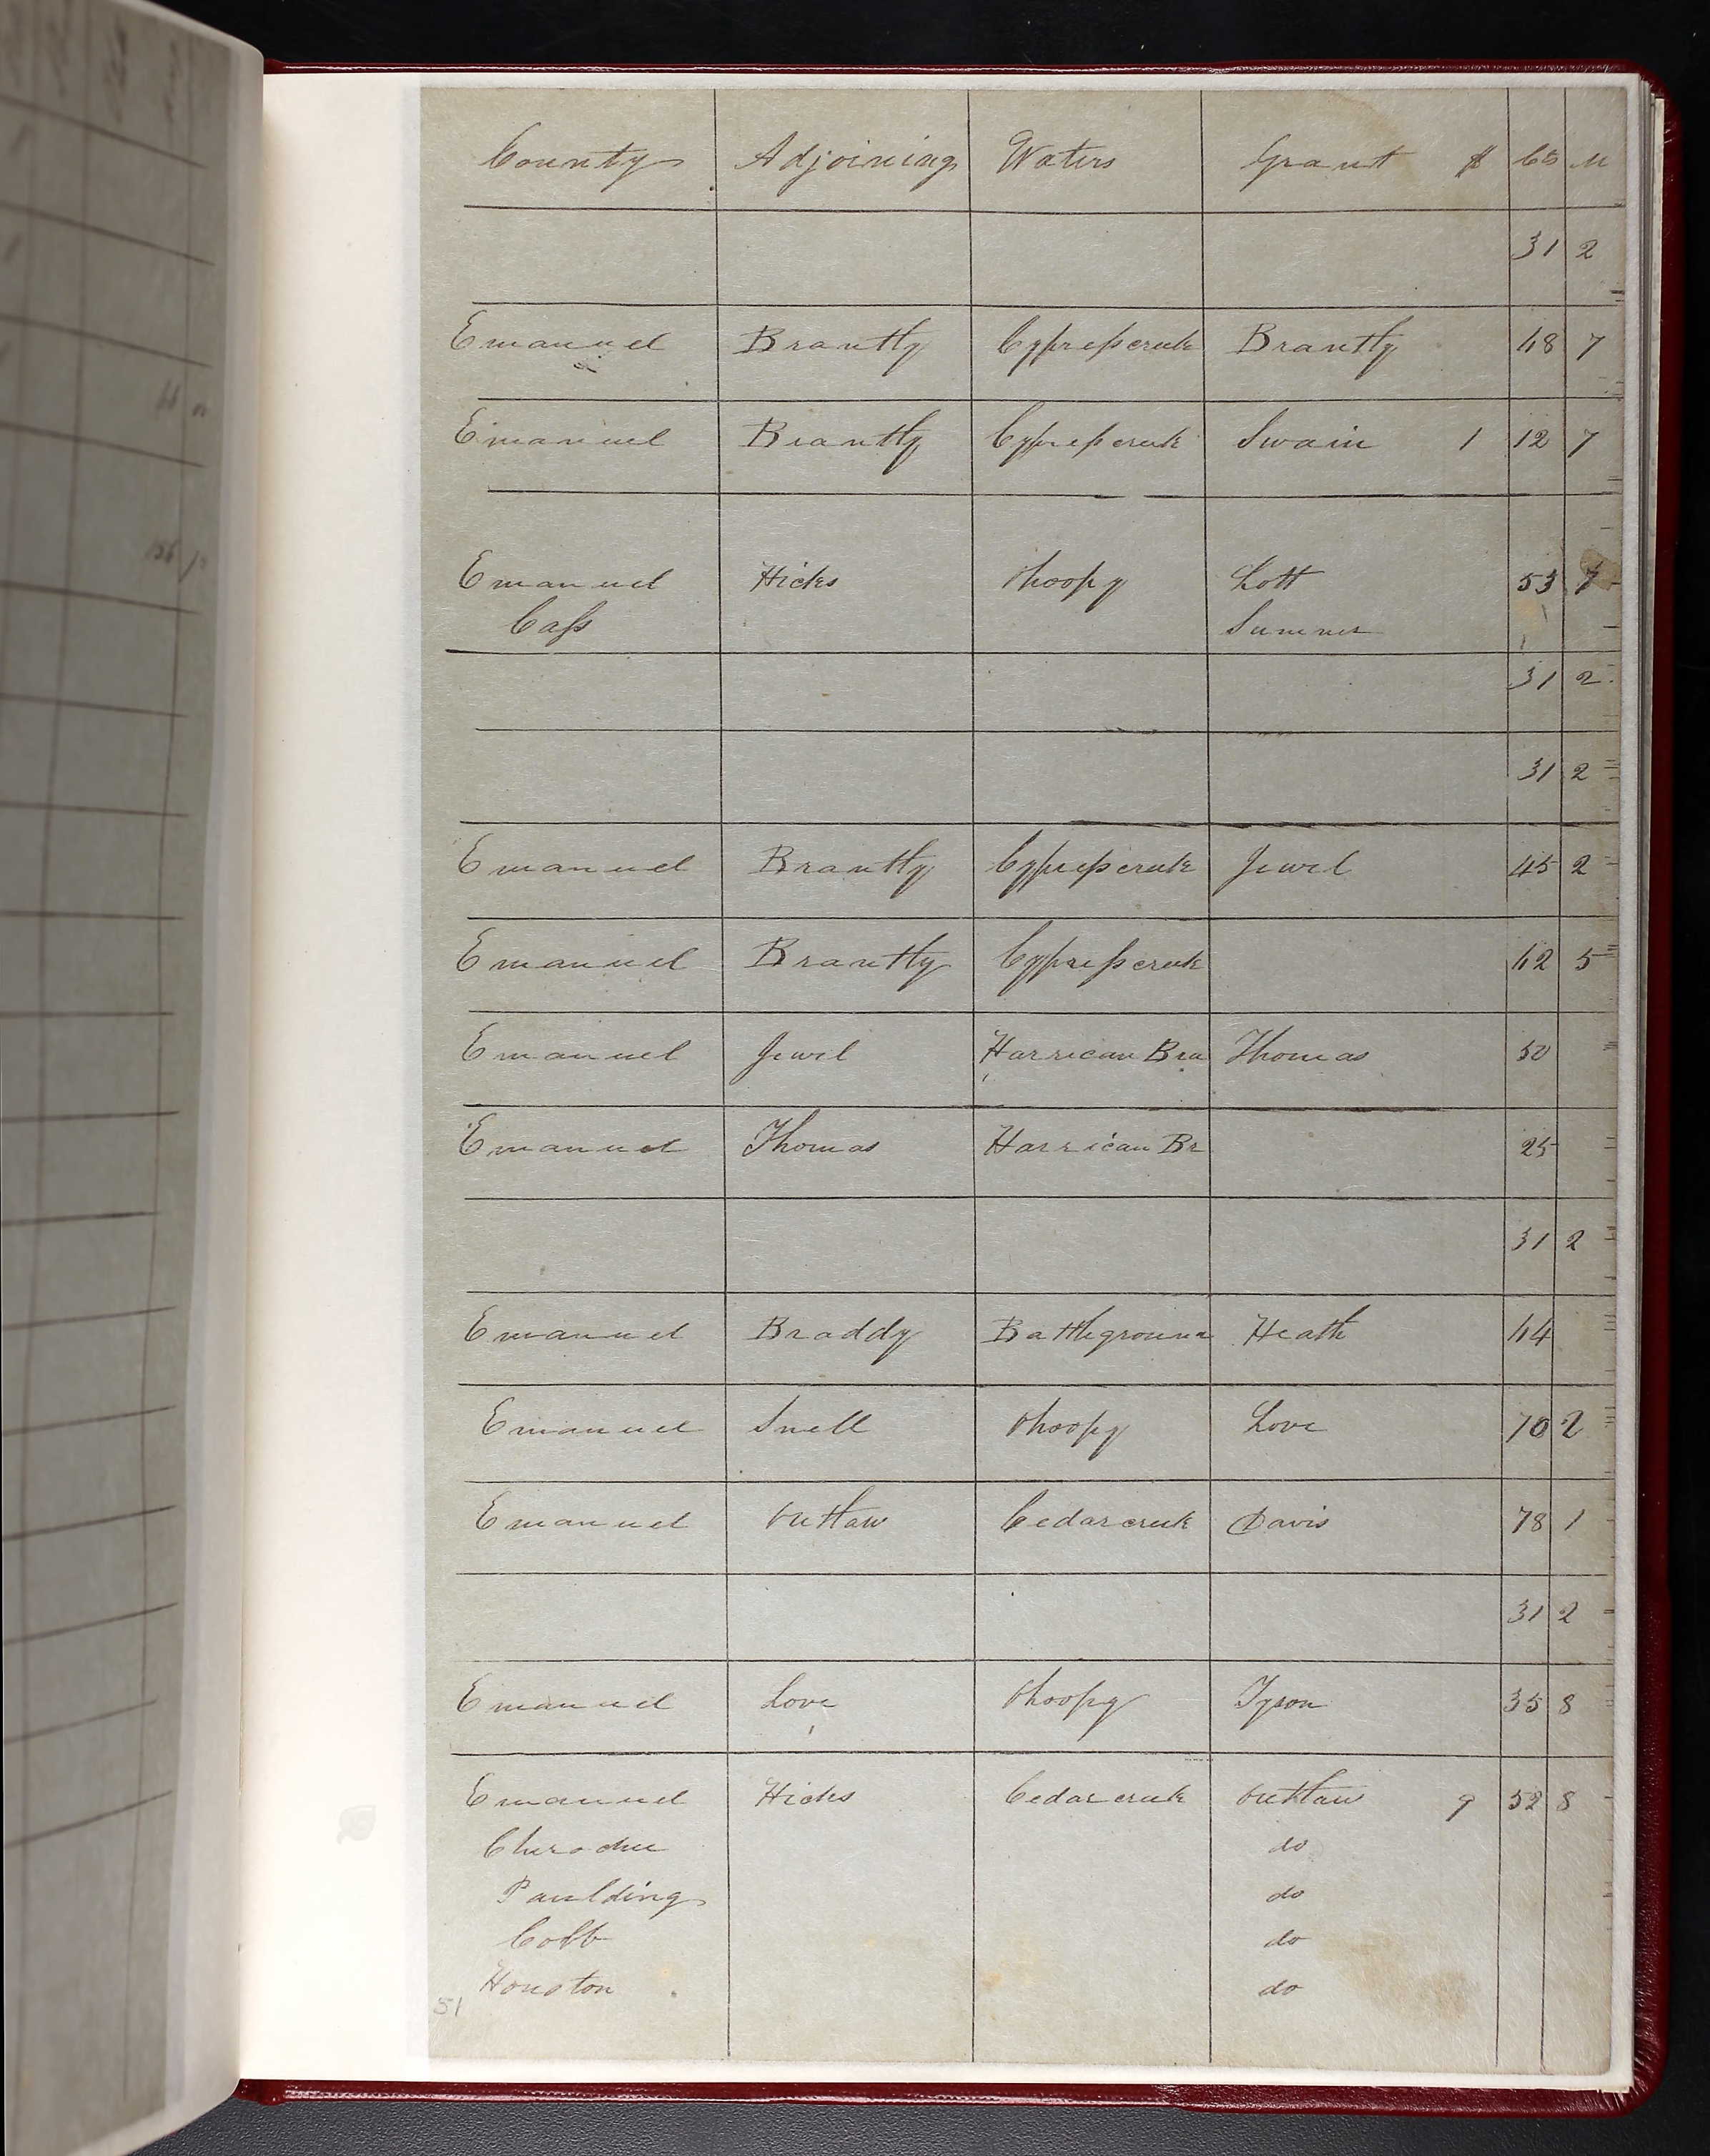 County Adjoining Waters Grant $ Cts M
31 2
Emanuel Brantly Cypress creek Brantly 48 7
Emanuel Brantly Cypress creek Swain 1 12 7
Emanuel Hicks Ohoopy Lott 53 7
Cass Sumner
31 2
31 2
Emanuel Brantly Cypress creek Jewel 45 2
Emanuel Brantly Cypress creek 42 5
Emanuel Jewel Harrican Bra Thomas 50
Emanuel Thomas Harrican Br 25
31 2
Emanuel Braddy Battleground Heath 44
Emanuel Snell Ohoopy Love 70 2
Emanuel Outlaw Cedar creek Davis 78 1
31 2
Emanuel Love Ohoopy Tyson 35 8
Emanuel Hicks Cedar creek Outlaw 9 52 8
Cherokee do
Paulding do
Cobb do
Houston do
51